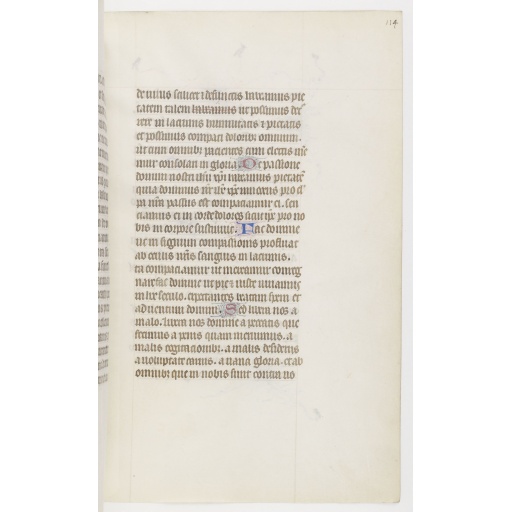 114
de vivis scilicet et defunctis habeamus pie
tatem talem habeamus ut possimus de
in lacrimis humilitatis et pietatis
et possimus compati doloribus omnium.
ut cum omnibus pacientes cum electis
mur consolari in gloria. De passione
domini nostri ihu xpi habeamus pietatem
quia dominus xpc
passus est compaciamur ei. Sen
ciamus ei in corde dolores sicut ipse pro no
bis in corpore sustinuit. Fac domine
ut in signum compassionis profluat
ab oculis nostris sanguis in lacrimis.
ta compaciamur ut mereamur conreg
nare fac domine ut pie et iuste vivamus
in hoc seculo. expectantes beatam spem et
adventum domini. Sed libera nos a
malo. libera nos domine a peccatis que
fecimus a penis quam meruimus. a
malis cogitationibus. a malis desideriis
a voluptate carnis. a vana gloria. et ab
omnibus que in nobis sunt contra nos